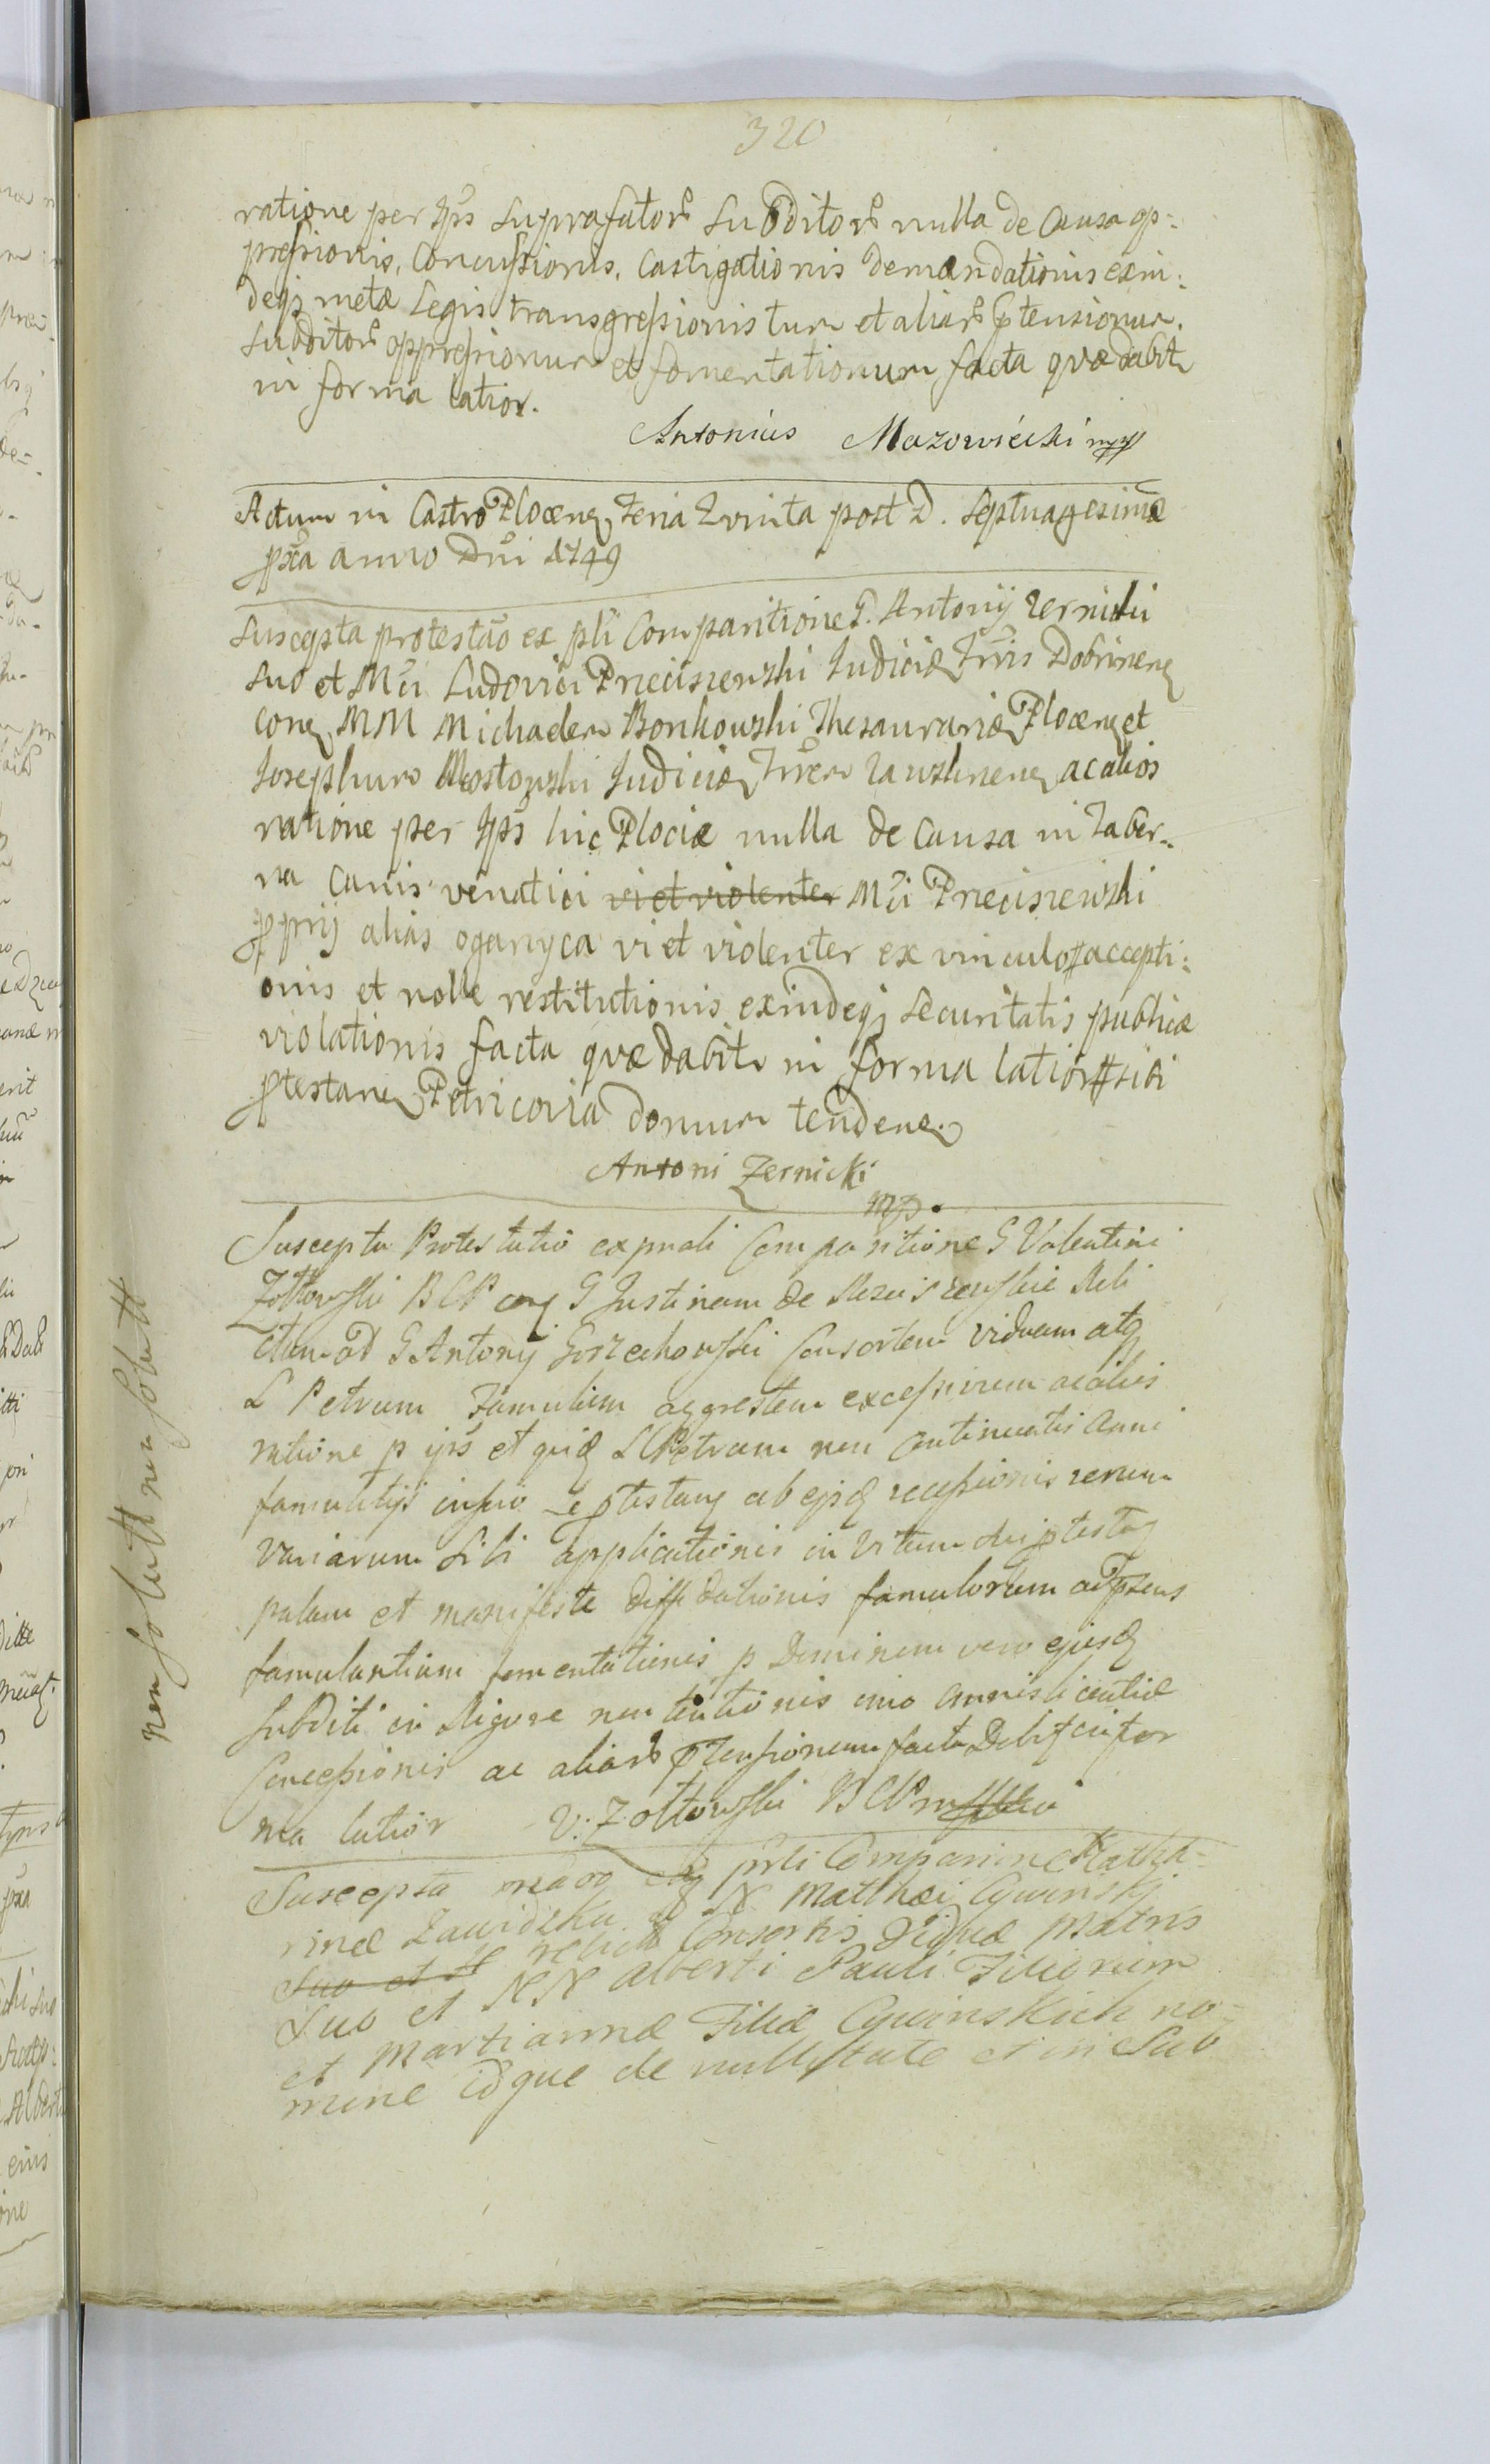 320
ratione per Ips suprafator subditor nulla de Causa op:
pressionis, Concussionis, Castigationis demandationis exin:
deqz metæ Legis transgressionis tum et aliar ptensionum.
subditor oppressionum et fomentationum facta quæ dabit
in forma latior.
Antonius Mazowiecki mpp
Actum in Castro Plocen Feria Qvinta post D. Septuagesimæ
pxa anno Dni 1749
Suscepta protestao ex pli Comparitione G. Antonij Zernicki
suo et Mci Ludovici Preciszewski Judicis Tris Dobrinen
con MM Michaelem Bonkowski Thesaurariæ Plocen et
Josephum Mostowski Judicem Trem Zawskrnen ac alios
ratione per Ips hic Plociæ nulla de Causa in Taber:
na Canis venatici vi et violenter Mci Preciszewski
pprij alias oganyca vi et violenter ex vinculo accepti:
onis et nolle restitutionis exindeqz securitatis publicæ
violationis facta quæ dabit in forma latior sibi
ptestan Petricovia domum tenden
Antoni Zernicki
mp.
Suscepta Protestatio ex pnali Comparitione G Valentini
Zołtowski BCP con G Justinam de
ctam ad G Antonij Gorzechowski Consortem viduam atq
L Petrum Famulum agrestem excessivum ac alios
ratione p ips et quidem L Petrum non Continuatis anni
famulitijs ab ejsq recessionis rerum
variarum sibi applicationis in
palam et manifeste diffidationis famulorum ad psens
famulantium fomentationis p Dominam vero ejusq
subditi in non tentionis imo omnis licentiæ
Concessionis ac aliar ptensionum facta Dabit in for
ma latior V: Zołtowski BCP mpp
Suscepta pnli Comparitione Catha-
rinæ N Matthæi Cywinskj
suo et relictæ Consortis Viduæ Matris
suo et NN Alberti Pauli Filiorum
et Martiannæ Filiæ Cywinskich no-
mine idque de nullitate et in Sub
non solutt non solutt